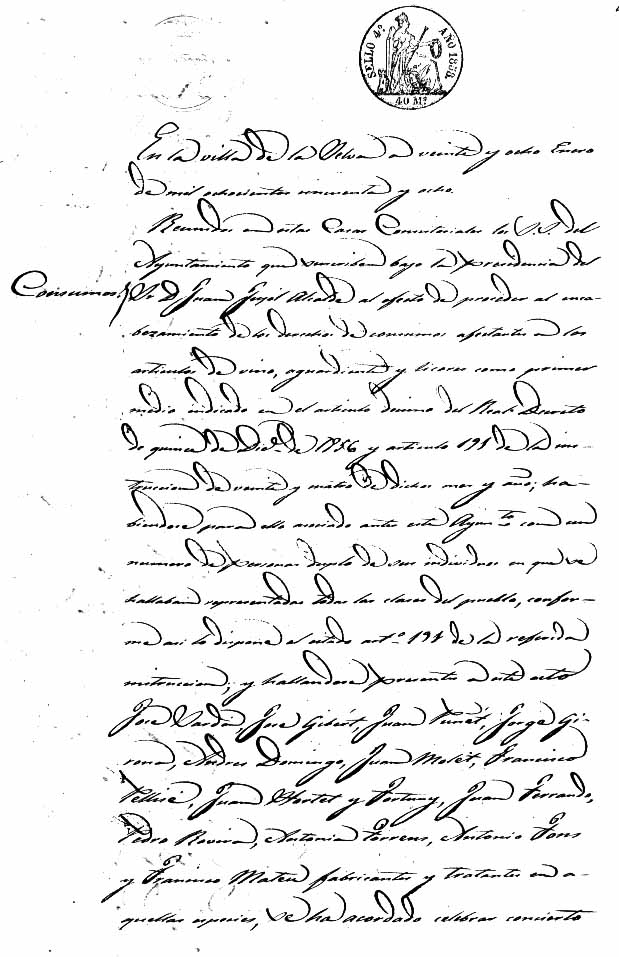 SELLO 4º AÑO 1858.
40 Ms.
En la villa de la Selva a veinte y ocho Enero
de mil ochocientos cincuenta y ocho.
Reunidos en estas Casas Consistoriales los S.S. del
Ayuntamiento que suscriben bajo la presidencia del
Consumos
Sr. D. Juan Alcalde al efecto de proceder al enca-
bezamiento de los derechos de consumos afectantes a los
articulos de vino, aguardiente y licores como primer
medio indicado en el articulo decimo del Real Decreto
de quince de Dicbe. de 1856 y articulo 191 de la ins-
truccion de veinte y cuatro de dichos mes y año; ha-
biendose para ello asociado antes este Ayunto. con un
numero de personas duplo de sus individuos en que se
hallaban representadas todas las clases del pueblo, confor-
me asi lo dispone el citado arto. 191 de la referida
instruccion, y hallandose presentes a este acto
Jose Jose Gibert, Juan Jorge Gi-
rona, Andres Domingo, Juan Molet, Francisco
Pellisé, Juan y Fortuny, Juan Ferrando,
Pedro Rovira, Antonio Torrens, Antonio Fons
y Francisco Mateu fabricantes y tratantes en a-
quellas especies, se ha acordado celebrar concierto